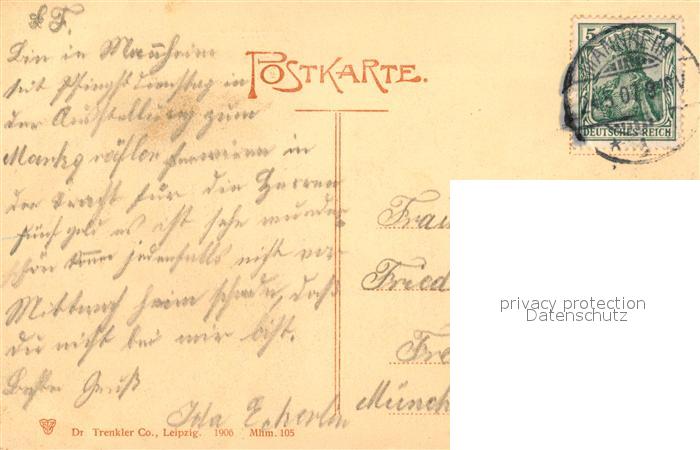 L. F.
Bin in Mannheim
seit Pfingst Dienstag in
der Ausstellung zum
Markgräfler servieren in
der Tracht für die Herren
fünf geld es ist sehr wunder
schön komme jedenfalls nicht vor
Mittwoch heim schade, daß
du nicht bei mir bist.
Beste Gruß
Ida
POSTKARTE.
5
MANNHEIM
DEUTSCHES REICH
Frau
Fried
Fre
Münch
privacy protection
Datenschutz
Dr. Trenkler Co., Leipzig. 1906 Mhm. 105